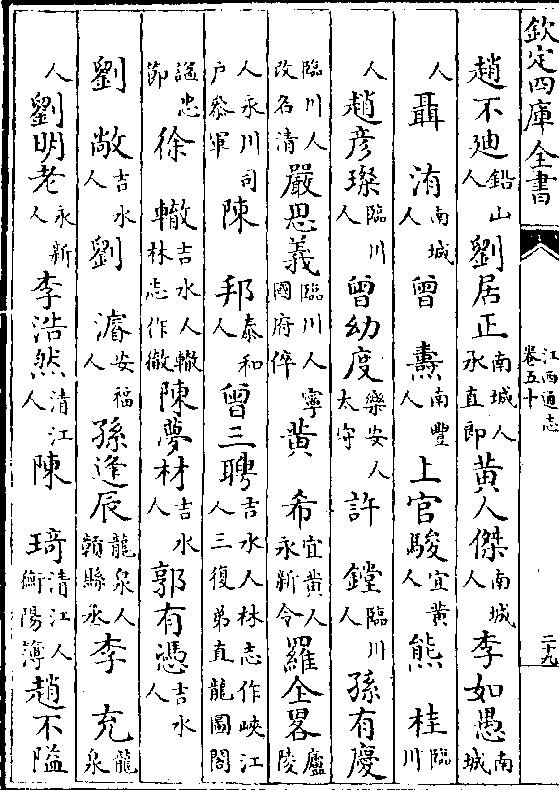 欽定四庫全書
江西通志
卷五十
二十九
趙不迹鉛山人劉居正南城人承直郎黃人傑南城人李如愚南城
人聶洧南城人曾燾南豐人上官駿宜黃人熊桂臨川
人趙彥璨臨川人曾幼度樂安人太守許鏜臨川人孫有慶
臨川人改名清嚴思義臨川人寧國府倅黃希宜黃人永新令羅全畧廬陵
人永川司户叅軍陳邦泰和人曾三聘吉水人林志作峽江人三復弟直龍圖閣
諡忠節徐轍吉水人轍林志作徹陳夢材吉水人郭有憑吉水人
劉敞吉水人劉濬安福人孫逢辰龍泉人贛縣丞李充龍泉
人劉明老永新人李浩然清江人陳琦清江人衡陽簿趙不隘